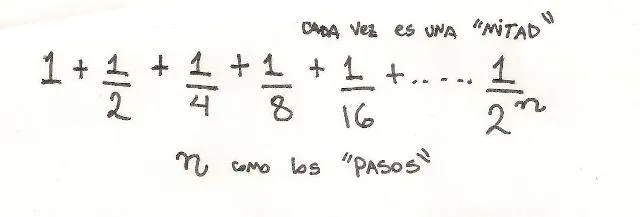 CADA VEZ ES UNA "MITAD"
1 + 1/2 + 1/4 + 1/8 + 1/16 + ..... 1/2^n
n como los "PASOS"